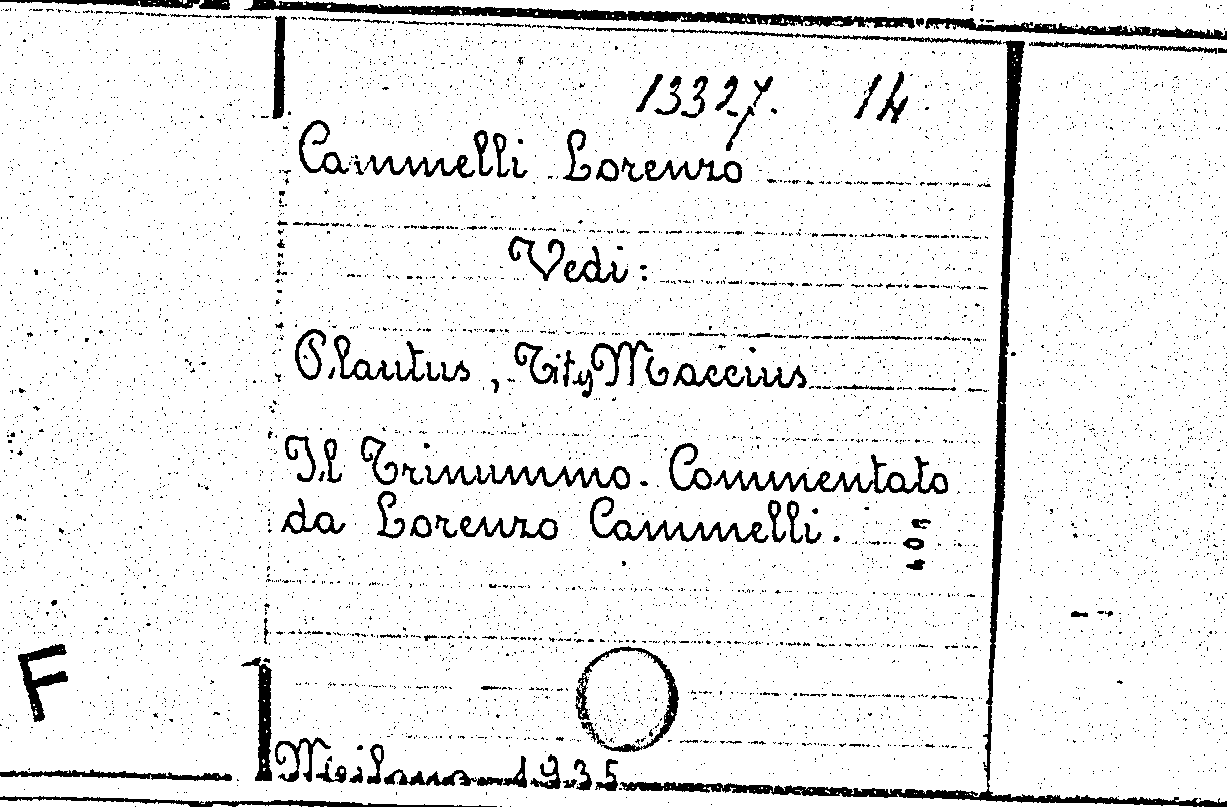 13327. 14
Cammelli Lorenzo
Vedi:
Plautus, Titus Maccius
Il Trinummo. Commentato
da Lorenzo Cammelli.
F
1935